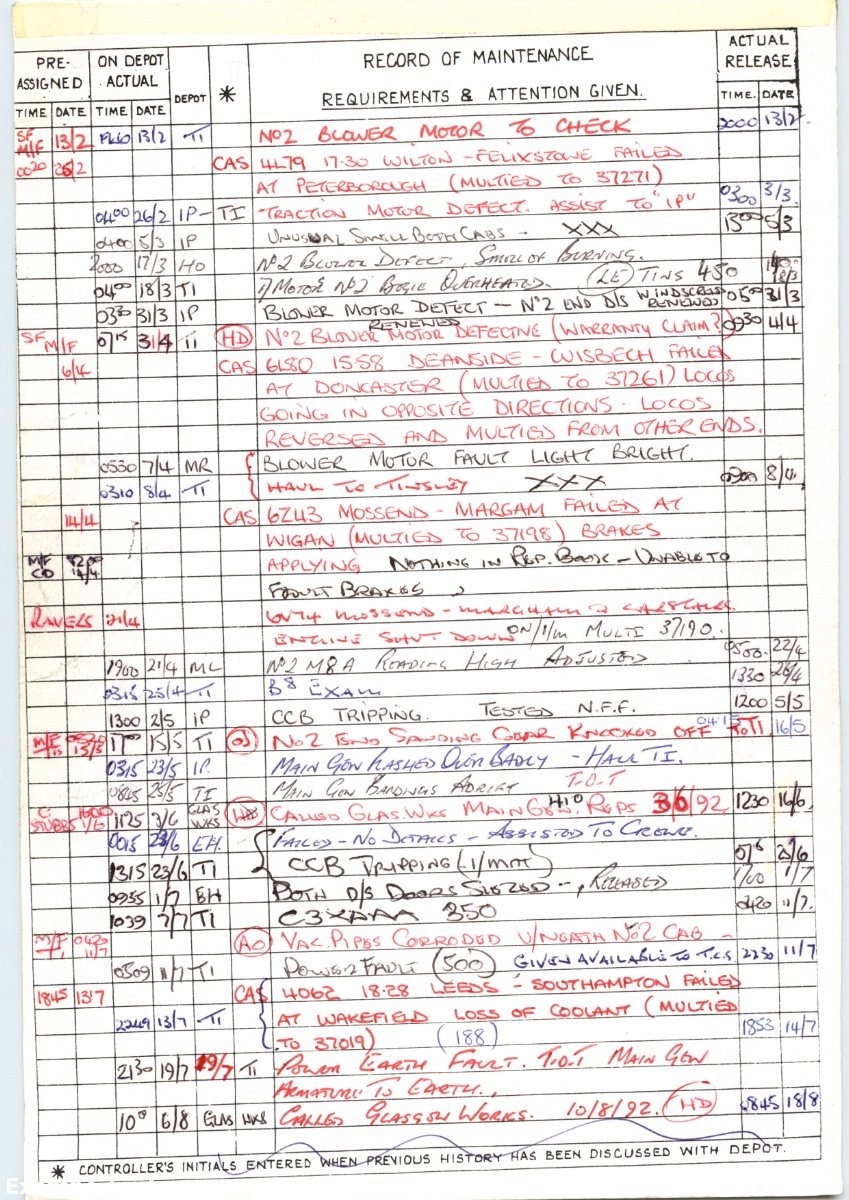 PRE-ASSIGNED ON DEPOT ACTUAL DEPOT * RECORD OF MAINTENANCE REQUIREMENTS & ATTENTION GIVEN. ACTUAL RELEASE
TIME DATE TIME DATE TIME. DATE
SF M/F 13/2 13/2 TI No2 BLOWER MOTOR TO CHECK 2000 13/2
0020 26/2 CAS 4L79 17.30 WILTON - FELIXSTOWE FAILED
AT PETERBOROUGH (MULTIED TO 37271)
0400 26/2 IP - TI TRACTION MOTOR DEFECT. ASSIST TO "IP" 0300 3/3.
0400 5/3 IP UNUSUAL SMELL BOTH CABS - XXX 1300 5/3
2000 17/3 HO No2 BLOWER DEFECT, SMELL OF BURNING.
0400 18/3 TI T/MOTOR No2 BOGIE OVERHEATED. (LE) TINS 450 18/3
0330 31/3 IP BLOWER MOTOR DEFECT - No2 END D/S WINDSCREEN RENEWED 0500 31/3
SF M/F 0715 3/4 TI (HD) No2 BLOWER MOTOR DEFECTIVE (WARRANTY CLAIM?) 0930 4/4
RENEWED
6/4 CAS 6L80 1558 DEANSIDE - WISBECH FAILED
AT DONCASTER (MULTIED TO 37261) LOCOS
GOING IN OPPOSITE DIRECTIONS. LOCOS
REVERSED AND MULTIED FROM OTHER ENDS.
0530 7/4 MR BLOWER MOTOR FAULT LIGHT BRIGHT.
0310 8/4 TI HAUL TO TINSLEY XXX 8/4
14/4 CAS 6Z43 MOSSEND - MARGAM FAILED AT
WIGAN (MULTIED TO 37198) BRAKES
M/F 14/4 APPLYING NOTHING IN REP. BOOK - UNABLE TO
FAULT BRAKES
21/4 6V74 MOSSEND - MARGHAM
ENGINE SHUT DOWN ON/1/m MULTI 37190.
1900 21/4 ML No2 M8A READING HIGH ADJUSTED 0500 22/4
0315 25/4 TI B8 EXAM 1330 26/4
1300 2/5 IP CCB TRIPPING. TESTED N.F.F. 1200 5/5
M/F 1700 15/5 TI No2 END SANDING GEAR KNOCKED OFF 0415 TO TI 16/5
0315 23/5 IP. MAIN GEN FLASHED OVER BADLY - HAUL TI.
0845 25/5 TI MAIN GEN BANDINGS ADRIFT T.O.T
C. STUBBS 1600 1/6 1125 3/6 GLAS WKS CALLED GLAS. WKS MAIN GEN. REPS 3/6/92. 1230 16/6.
0015 23/6 EH. FAILED - NO DETAILS - ASSISTED TO CREWE.
1315 23/6 TI CCB TRIPPING (1/mm)
0955 1/7 BH BOTH D/S DOORS SIEZED -, RELEASED 1700 1/7
1039 7/7 TI C3XAM 350 0420 11/7.
M/F 0420 11/7 (AO) VAC. PIPES CORRODED U/NEATH No2 CAB -
0509 11/7 TI POWER FAULT (500) GIVEN AVAILABLE TO T.C.S 2230 11/7
1845 13/7 CAS 4062 18.28 LEEDS - SOUTHAMPTON FAILED
2249 13/7 TI AT WAKEFIELD LOSS OF COOLANT (MULTIED
TO 37019) (188) 1853 14/7
2130 19/7 19/7 TI POWER EARTH FAULT. T.O.T MAIN GEN
ARMATURE TO EARTH.
10 6/8 GLAS WKS CALLED GLASGOW WORKS. 10/8/92. (HD) 0845 18/8
* CONTROLLER'S INITIALS ENTERED WHEN PREVIOUS HISTORY HAS BEEN DISCUSSED WITH DEPOT.